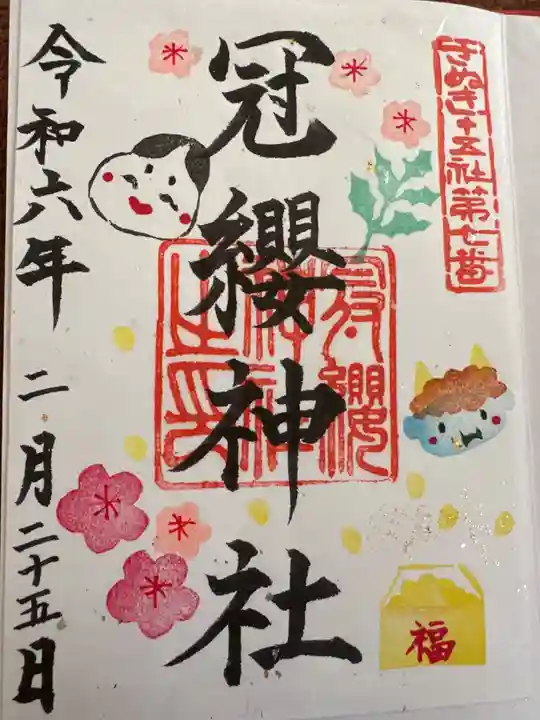 さぬき十五社第七番
冠纓神社
冠纓
神社
之印
令和六年 二月二十五日
福